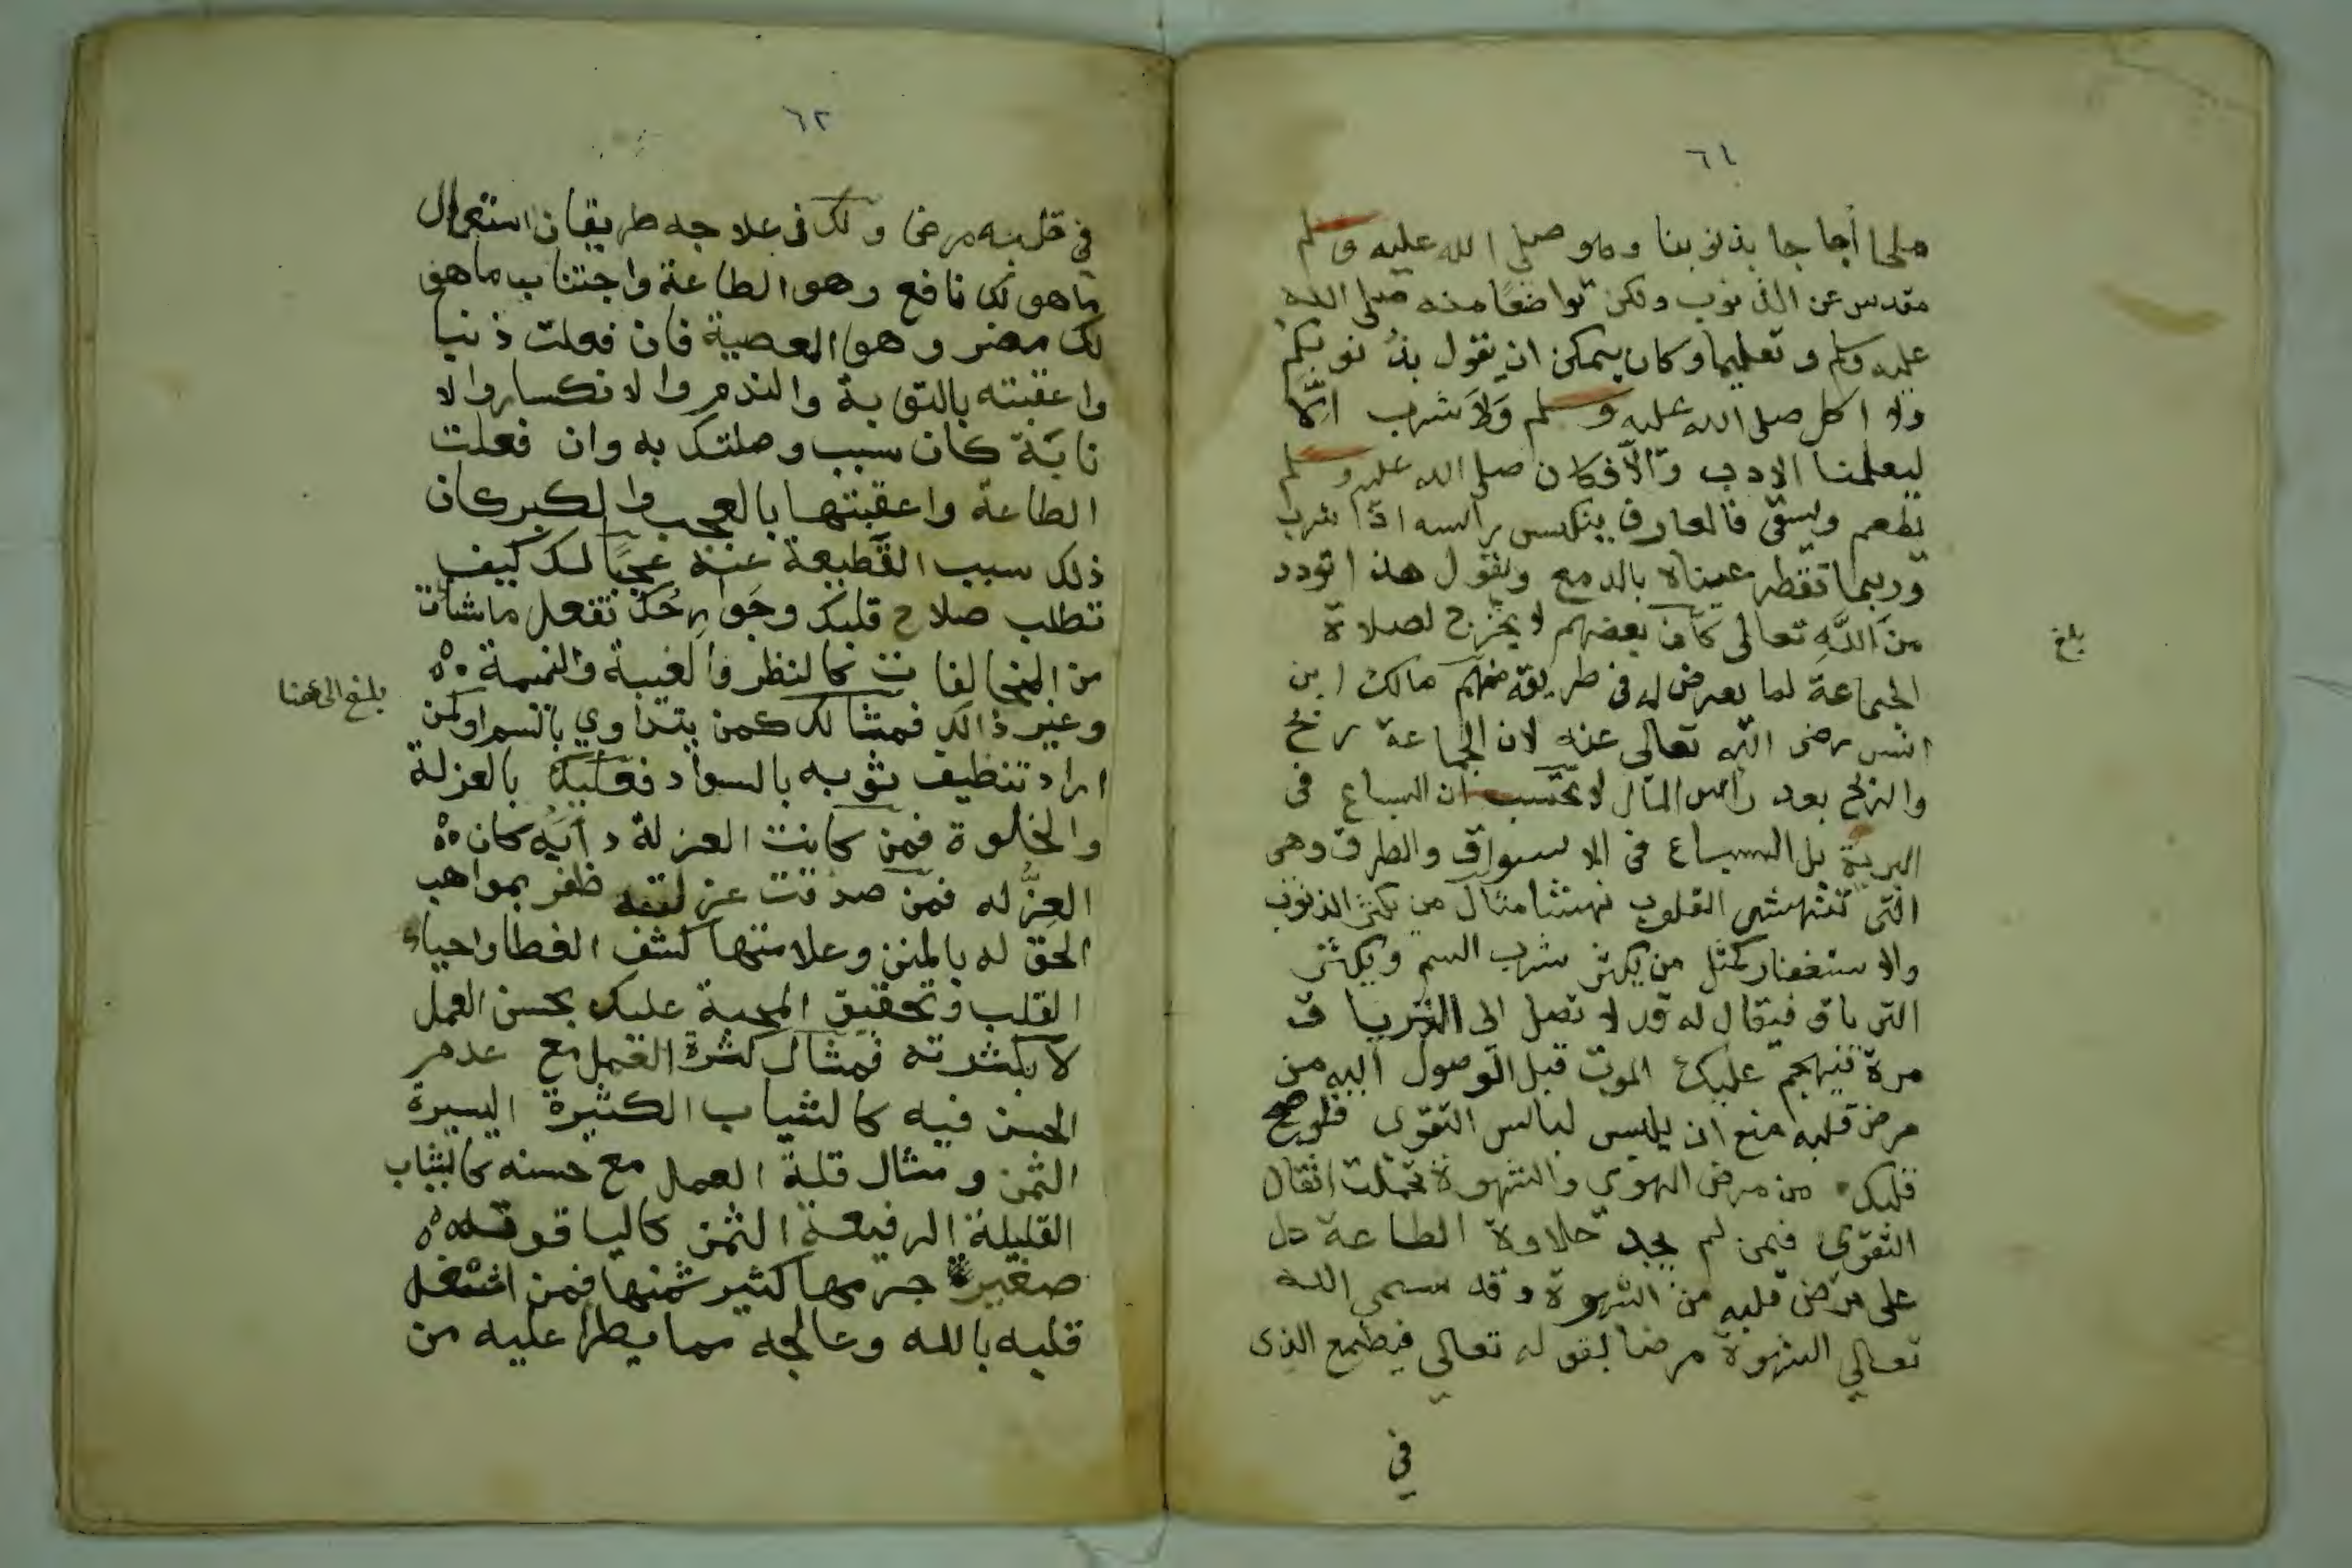 ٦١
ملحا أجاجا بذنوبنا وهو صلى الله عليه وسلم
مقدس عن الذنوب ولكن تواضعًا منه صلى الله
عليه وسلم وتعليما وكان يمكن ان يقول بذُنوبكم
ولا اكل صلى الله عليه وسلم وَلاَ شرب الّا
ليعلمنا الادب والّا فكان صلى الله عليه وسلم
يطعم ويسقى فالعارف ينكس راسه اذا شرب
وربما تقطر عيناه بالدمع ويقول هذا تودد
من اللَّهِ تعالى كان بعضهم لا يخرج لصلاة
الجماعة لما يعرض له فى طريقه منهم مالك ابن
انس رضى الله تعالى عنه لان الجماعة ربح
والربح بعد راس المال لا تحسب ان السباع فى
البرية بل السباع فى الاسواق والطرق وهى
التى تنهش القلوب نهشا مثال من يكثر الذنوب
والاستغفار كمثل من يكثر شرب السم ويكثر
الترياق فيقال له قد لا تصل الى الترياق
مرة فيهجم عليك الموت قبل الوصول اليه من
مرض قلبه منع ان يلبس لباس التقوى فلو صح
قلبك من مرض الهوي والشهوة تحملت اثقال
التقوي فمن لم يجد حلاوة الطاعة دل
على مرض قلبه من الشهوة وقد سمى الله
تعالي الشهوة مرضا بقوله تعالي فيطمع الذى
في
بلغ
٦٢
في قلبه مرض ولك فى علاجه طريقان استعمال
ما هو لك نافع وهو الطاعة واجتناب ما هو
لك مضر وهو المعصية فان فعلت ذنبا
واعقبته بالتوبة والندم والانكسار والا
نابَة كان سبب وصلتك به وان فعلت
الطاعة واعقبتها بالعجب والكبر كان
ذلك سبب القطيعة عنه عجبًا لك كيف
تطلب صلاح قلبك وجَوارِحُك تفعل ما شأت
من المخالفات كالنظر والغيبة والنميمة
وغير ذالك فمثالك كمن يتداوي بالسم او كمن
اراد تنظيف ثوبه بالسواد فعليك بالعزلة
والخلوة فمن كانت العزلة دأبَه كان
العِزُّ له فمن صدقت عزلته ظفر بمواهب
الحق له بالمنن وعلامتها كشف الغطا واحياء
القلب وتحقيق المحبة عليك بحسن العمل
لا بكثرته فمثال كثرة العمل مع عدم
الحسن فيه كالثياب الكثيرة اليسيرة
الثمن ومثال قلة العمل مع حسنه كالثياب
القليلة الرفيعة الثمن كالياقوتة
صغير جرمها كثير ثمنها فمن اشتغل
قلبه بالله وعالجه مما يطرأ عليه من
بلغ الى هنا